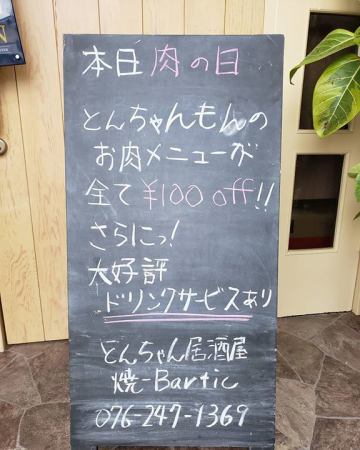 本日肉の日
とんちゃんもんの
お肉メニューが
全て¥100 off!!
さらにっ!
大好評
ドリンクサービスあり
とんちゃん居酒屋
焼-Bartic
076-247-1369